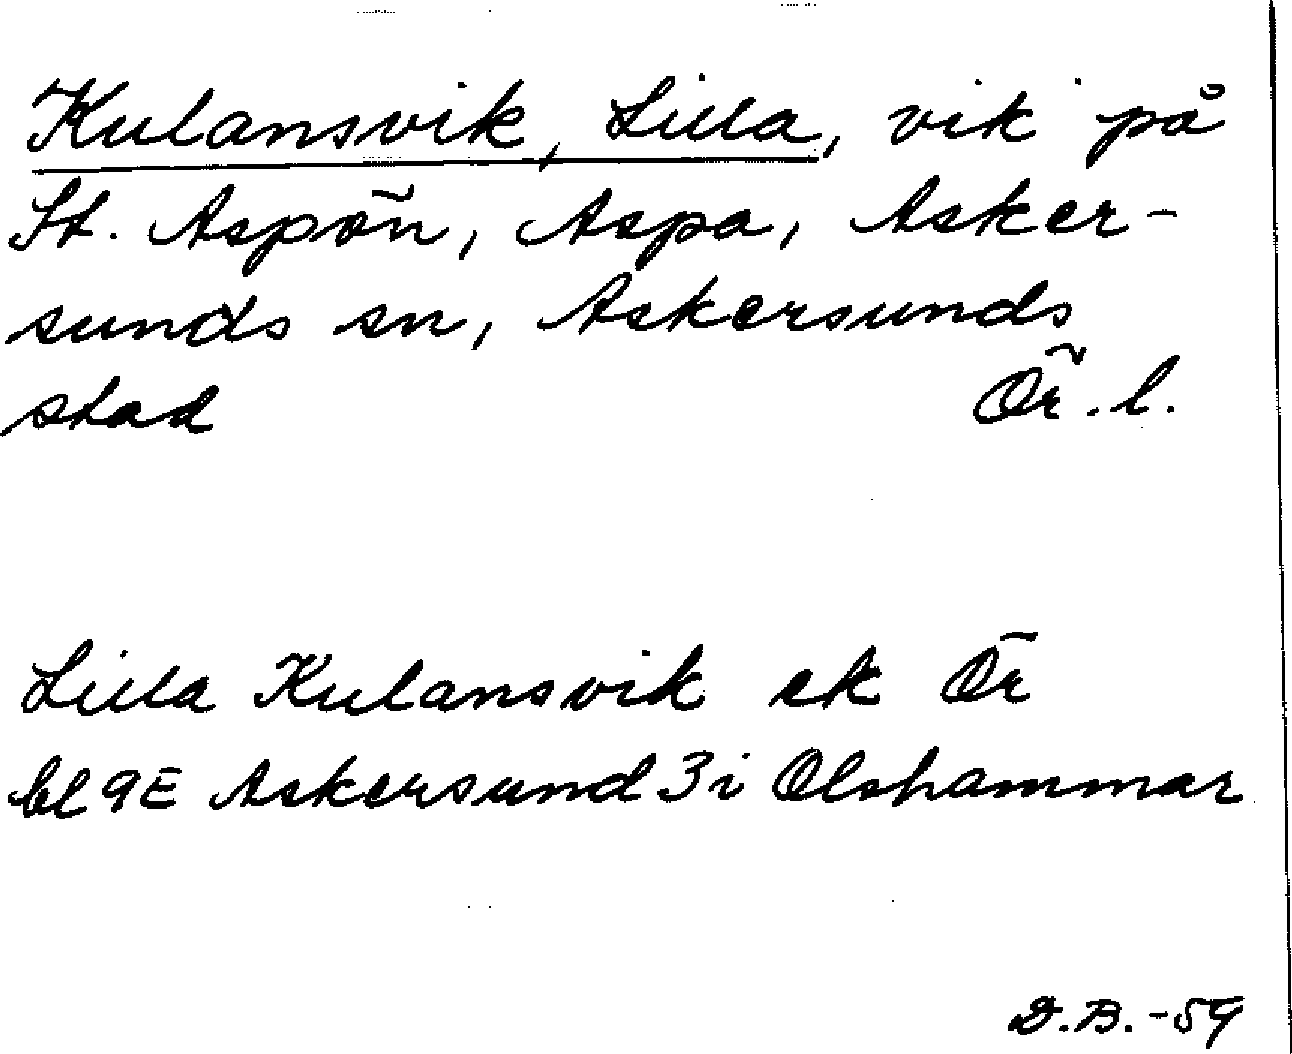 Kulansvik, Lilla, vik på
St. Aspön, Aspa, Asker-
sunds sn, Askersunds
stad Ör. l.
Lilla Kulansvik ek Ör
bl 9E Askersund 3i Olshammar
D.B. -59